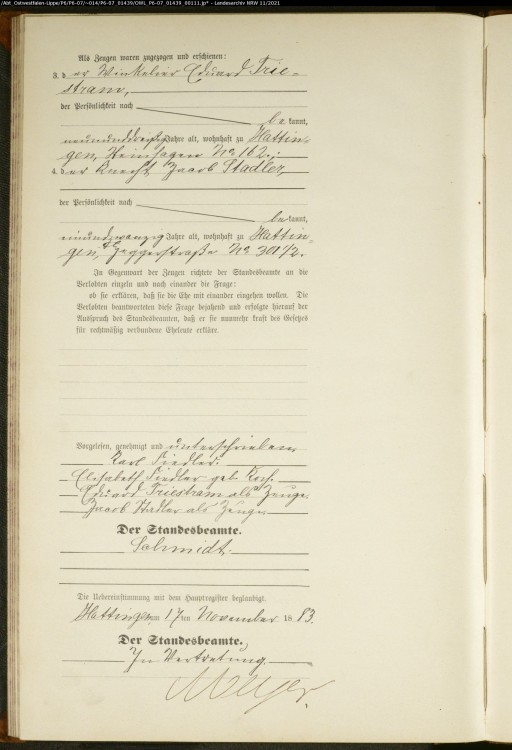 /Abt_Ostwestfalen-Lippe/P6/P6-07/~014/P6-07_01439/OWL_P6-07_01439_00111.jp* - Landesarchiv NRW 11/2021
Als Zeugen waren zugezogen und erschienen:
3. der Winkelier Eduard Trie-
stram,
der Persönlichkeit nach
be kannt,
neununddreißig Jahre alt, wohnhaft zu Hattin-
gen, No 162;
4. der Knecht Jacob Stadler,
der Persönlichkeit nach
be kannt,
einundzwanzig Jahre alt, wohnhaft zu Hattin-
gen, No 301 1/2.
In Gegenwart der Zeugen richtete der Standesbeamte an die
Verlobten einzeln und nach einander die Frage:
ob sie erklären, daß sie die Ehe mit einander eingehen wollen. Die
Verlobten beantworteten diese Frage bejahend und erfolgte hierauf der
Ausspruch des Standesbeamten, daß er sie nunmehr kraft des Gesetzes
für rechtmäßig verbundene Eheleute erkläre.
Vorgelesen, genehmigt und unterschrieben
Karl Fiedler.
Elisabeth Fiedler geb. Koch.
Eduard Triestram als Zeuge
Jacob Stadler als Zeuge
Der Standesbeamte.
Schmidt.
Die Uebereinstimmung mit dem Hauptregister beglaubigt.
Hattingen am 17 ten November 18 83.
Der Standesbeamte.
In Vertretung.
Meyer